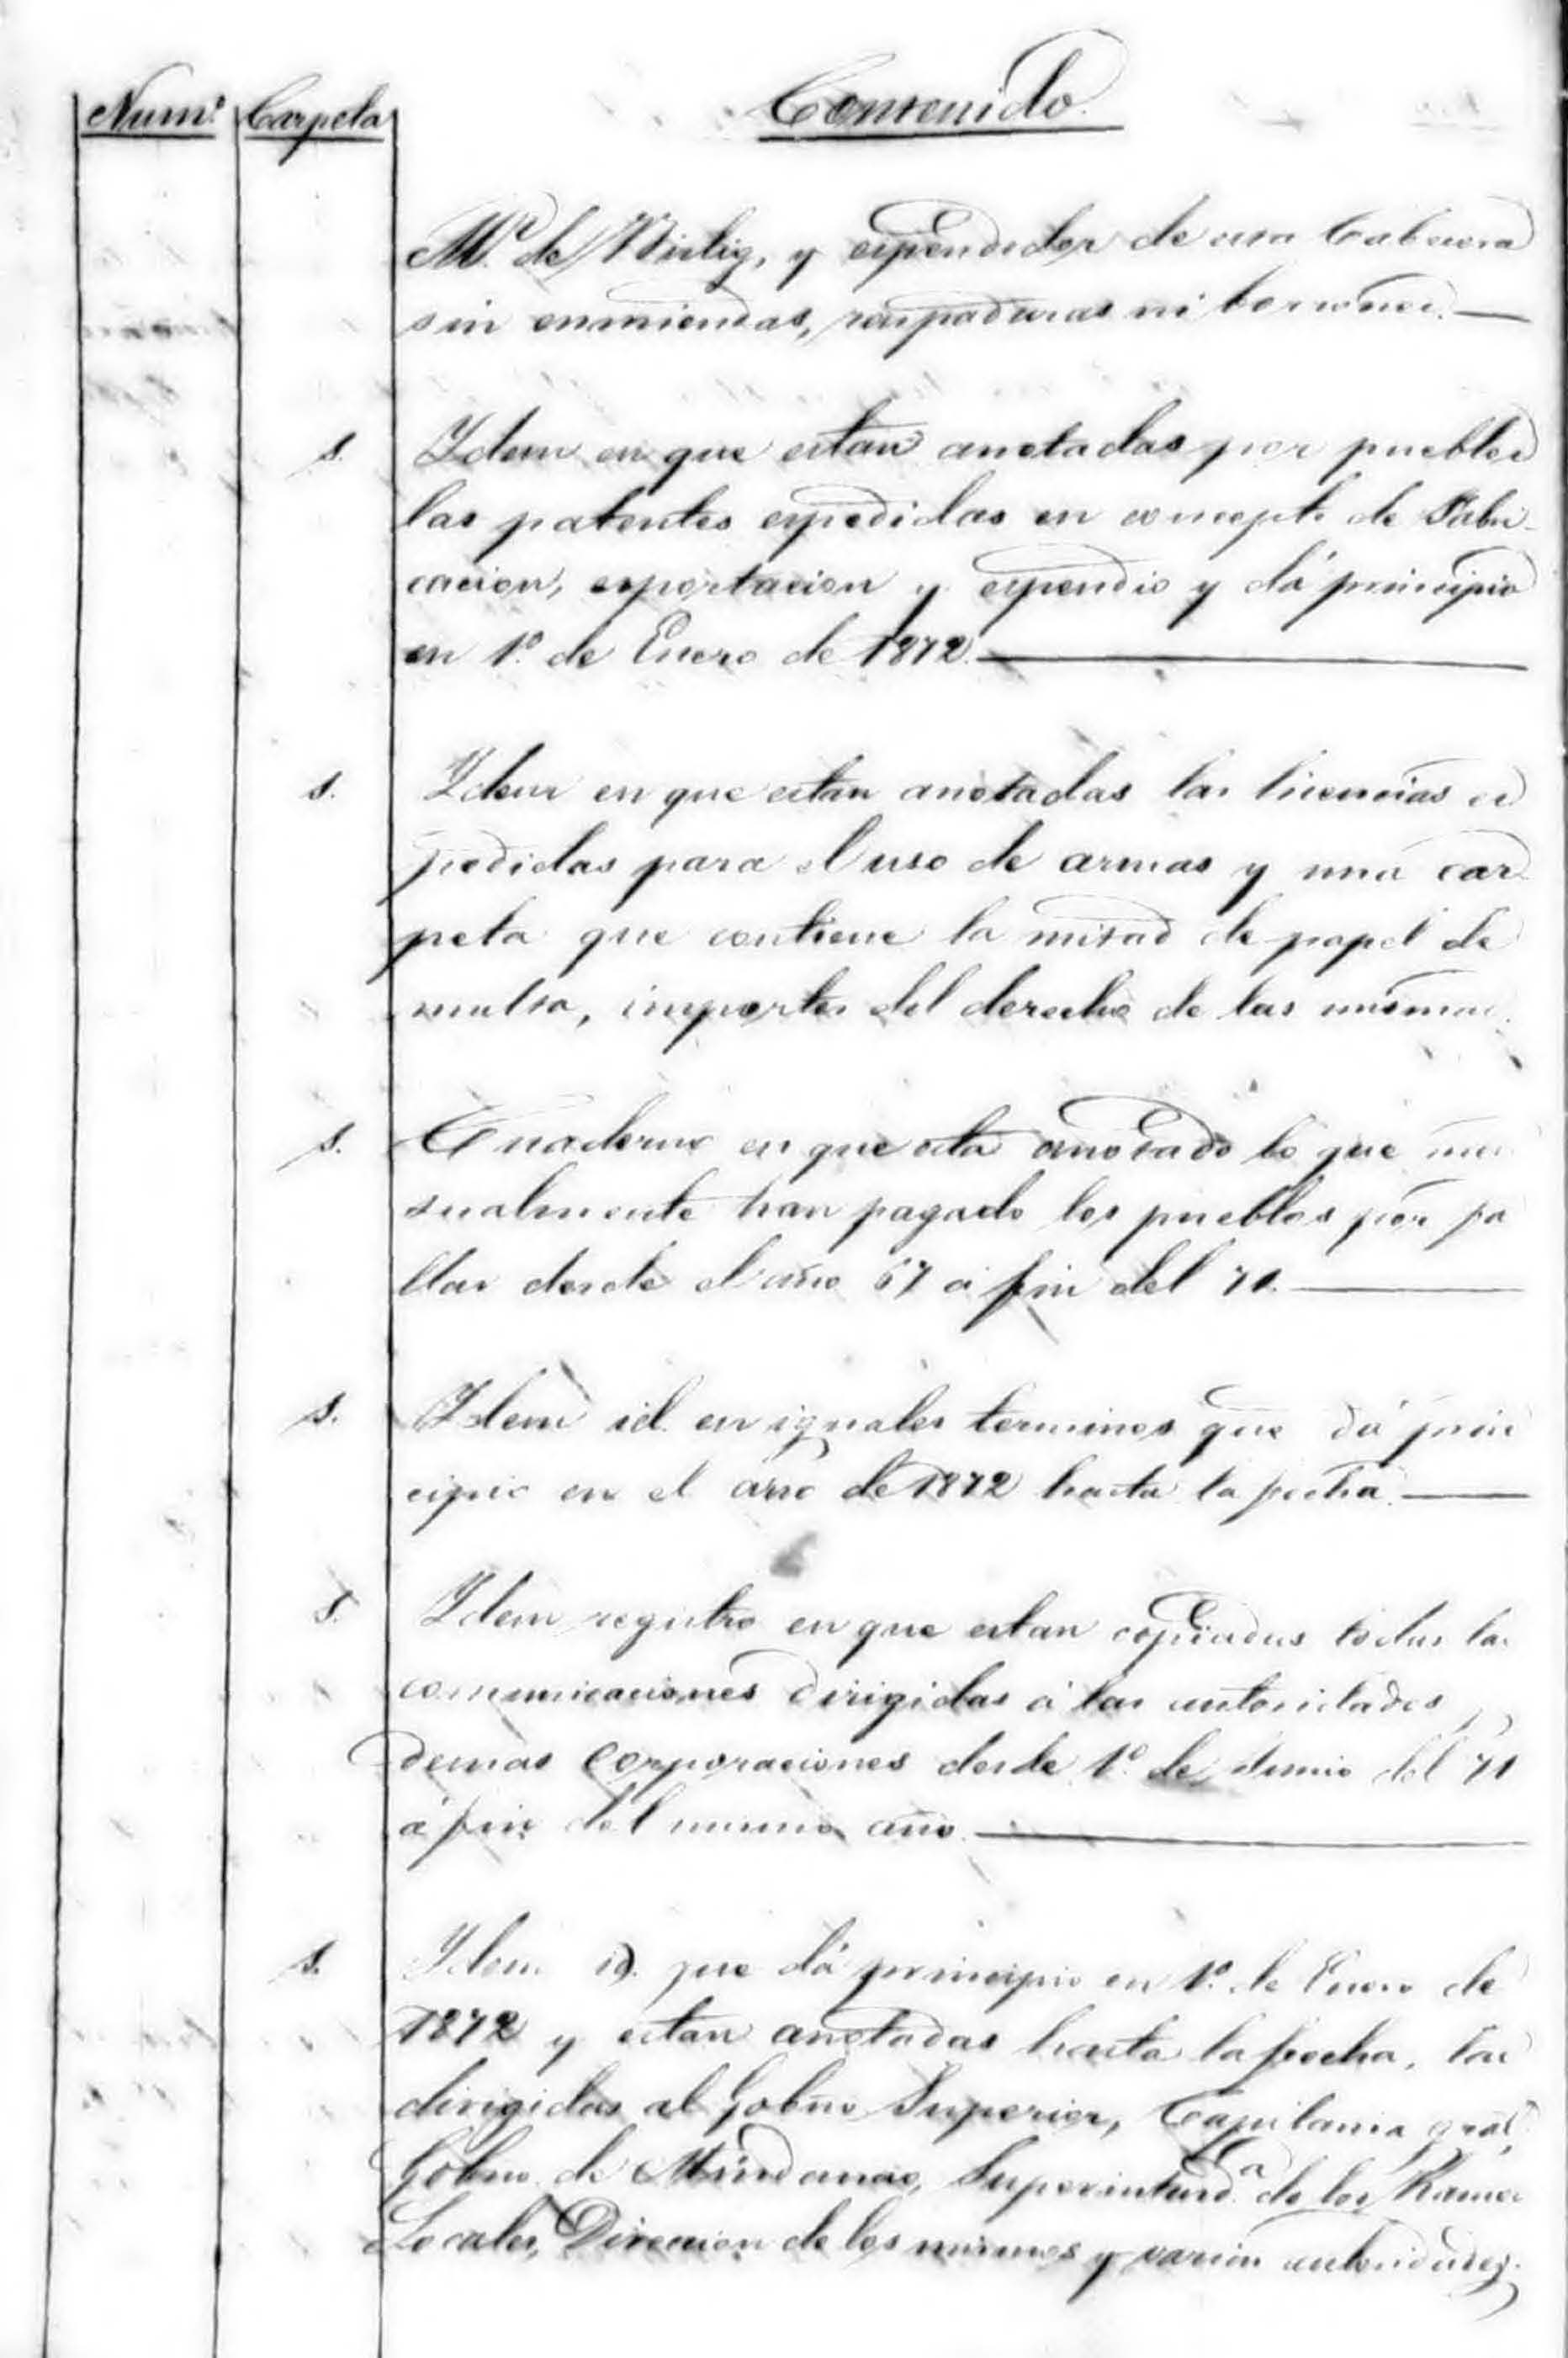 Num.º Carpeta Contenido.
M.ª de Bislig, y espendedor de esa Cabecera
sin enmiendas, raspaduras ni borrones.
s. Ydem en que estan anotadas por pueblos
las patentes espedidas en concepto de Fabri-
cacion, esportacion y espendio y dá principio
en 1.º de Enero de 1872.
s. Ydem en que estan anotadas las licencias es
pedidas para el uso de armas y una car
peta que contiene la mitad de papel de
multa, importes del derecho de las mismas.
s. Cuaderno en que esta anotado lo que men
sualmente han pagado los pueblos por fa
llas desde el año 67 á fin del 71.
s. Ydem id. en iguales terminos que dá prin
cipio en el año de 1872 hasta la fecha.
s. Ydem registro en que estan copiadas todas las
comunicaciones dirigidas á las autoridades y
demas Corporaciones desde 1.º de Junio del 71
á fin del mismo año.
s. Ydem id. que dá principio en 1.º de Enero de
1872 y estan anotadas hasta la fecha, las
dirigidas al Gobno Superior, Capitania gral,
Gobno de Mindanao, Superintend.ª de los Ramos
Locales, Direccion de los mismos y varias autoridades.